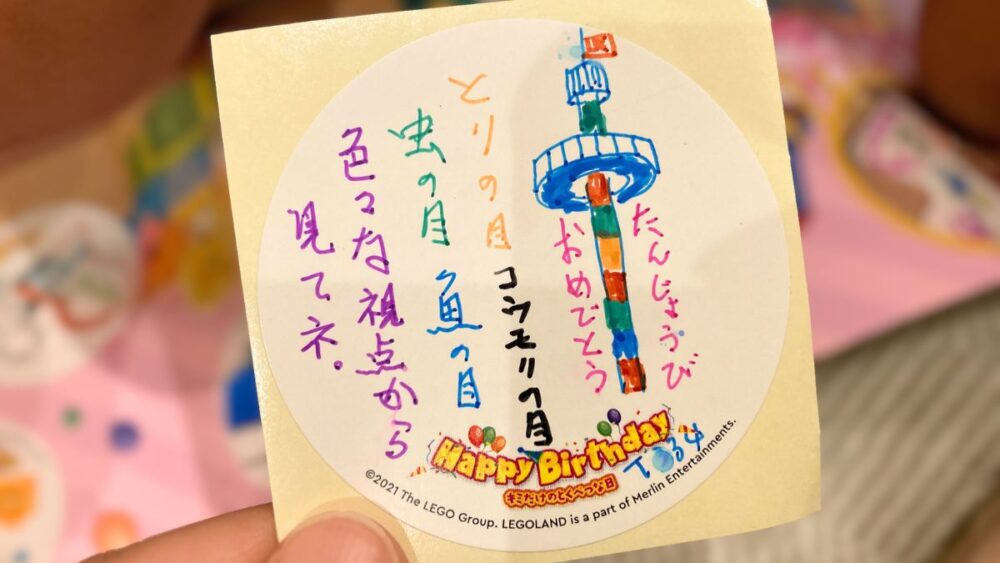 たんじょうび
おめでとう
とりの目
コウモリの目
虫の目
魚の目
色々な視点から
見てネ。
Happy Birthday
キミだけのとくべつな日
©2021 The LEGO Group. LEGOLAND is a part of Merlin Entertainments.